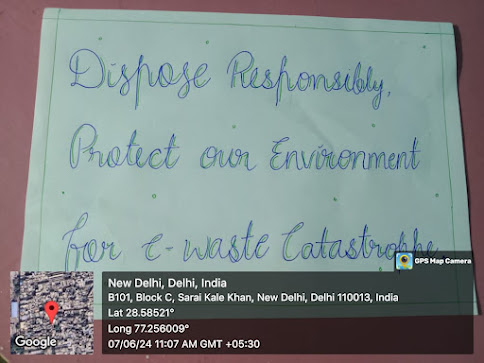 Dispose Responsibly,
Protect our Environment
for e-waste Catastrophe
GPS Map Camera
New Delhi, Delhi, India
B101, Block C, Sarai Kale Khan, New Delhi, Delhi 110013, India
Lat 28.58521°
Long 77.256009°
07/06/24 11:07 AM GMT +05:30
Google